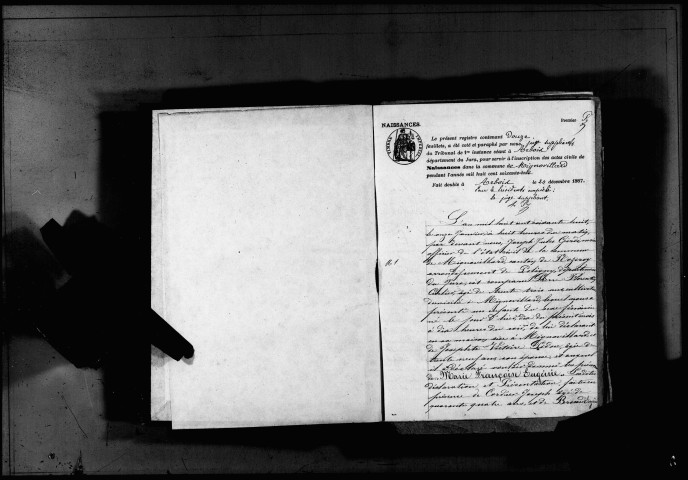 NAISSANCES.
Premier
Le présent registre contenant Douze
feuillets, a été coté et paraphé par nous, juge suppléant
du Tribunal de 1re instance séant à Arbois
département du Jura, pour servir à l'inscription des actes civils de
Naissances dans la commune de Mignovillard
pendant l'année mil huit cent soixante-huit.
Fait double à Arbois le 20 décembre 1867.
le juge suppléant,
N° 1
L'an mil huit cent soixante huit,
le onze Janvier, à huit heures du matin,
par devant nous, Joseph Jules maire
officier de l'état civil de la commune
de Mignovillard, canton de Nozeroy
arrondissement de Poligny, département
du Jura, est comparu
âgé de trente trois ans, cultivateur
domicilié à Mignovillard, lequel nous a
présenté un enfant du sexe féminin
né le jour d'hier, dix du présent mois
à dix heures du soir, de lui déclarant
en sa maison, sise à Mignovillard et
de Josephte Victoire âgée de
trente neuf ans son épouse, et auquel
il a déclaré vouloir donner les prénoms
de Marie Françoise Eugénie
déclaration et Présentation faites en
présence de Cordier Joseph âgé de
quarante quatre ans, et de